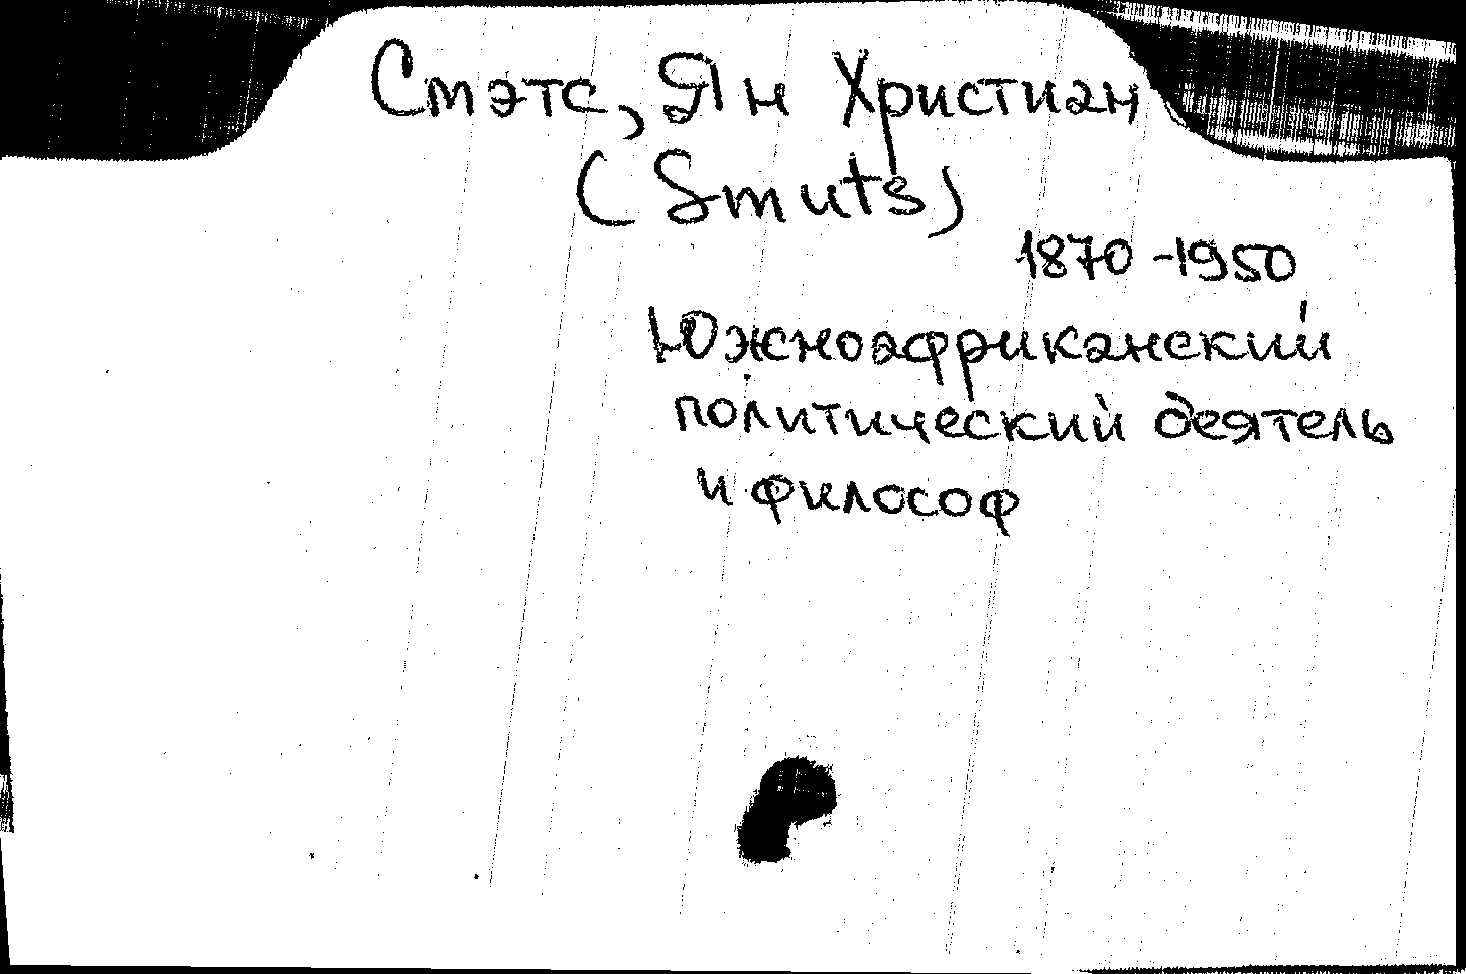 Смэтс, Ян Христиан
(Smuts)
1870-1950
Южноафриканский
политический деятель
и философ